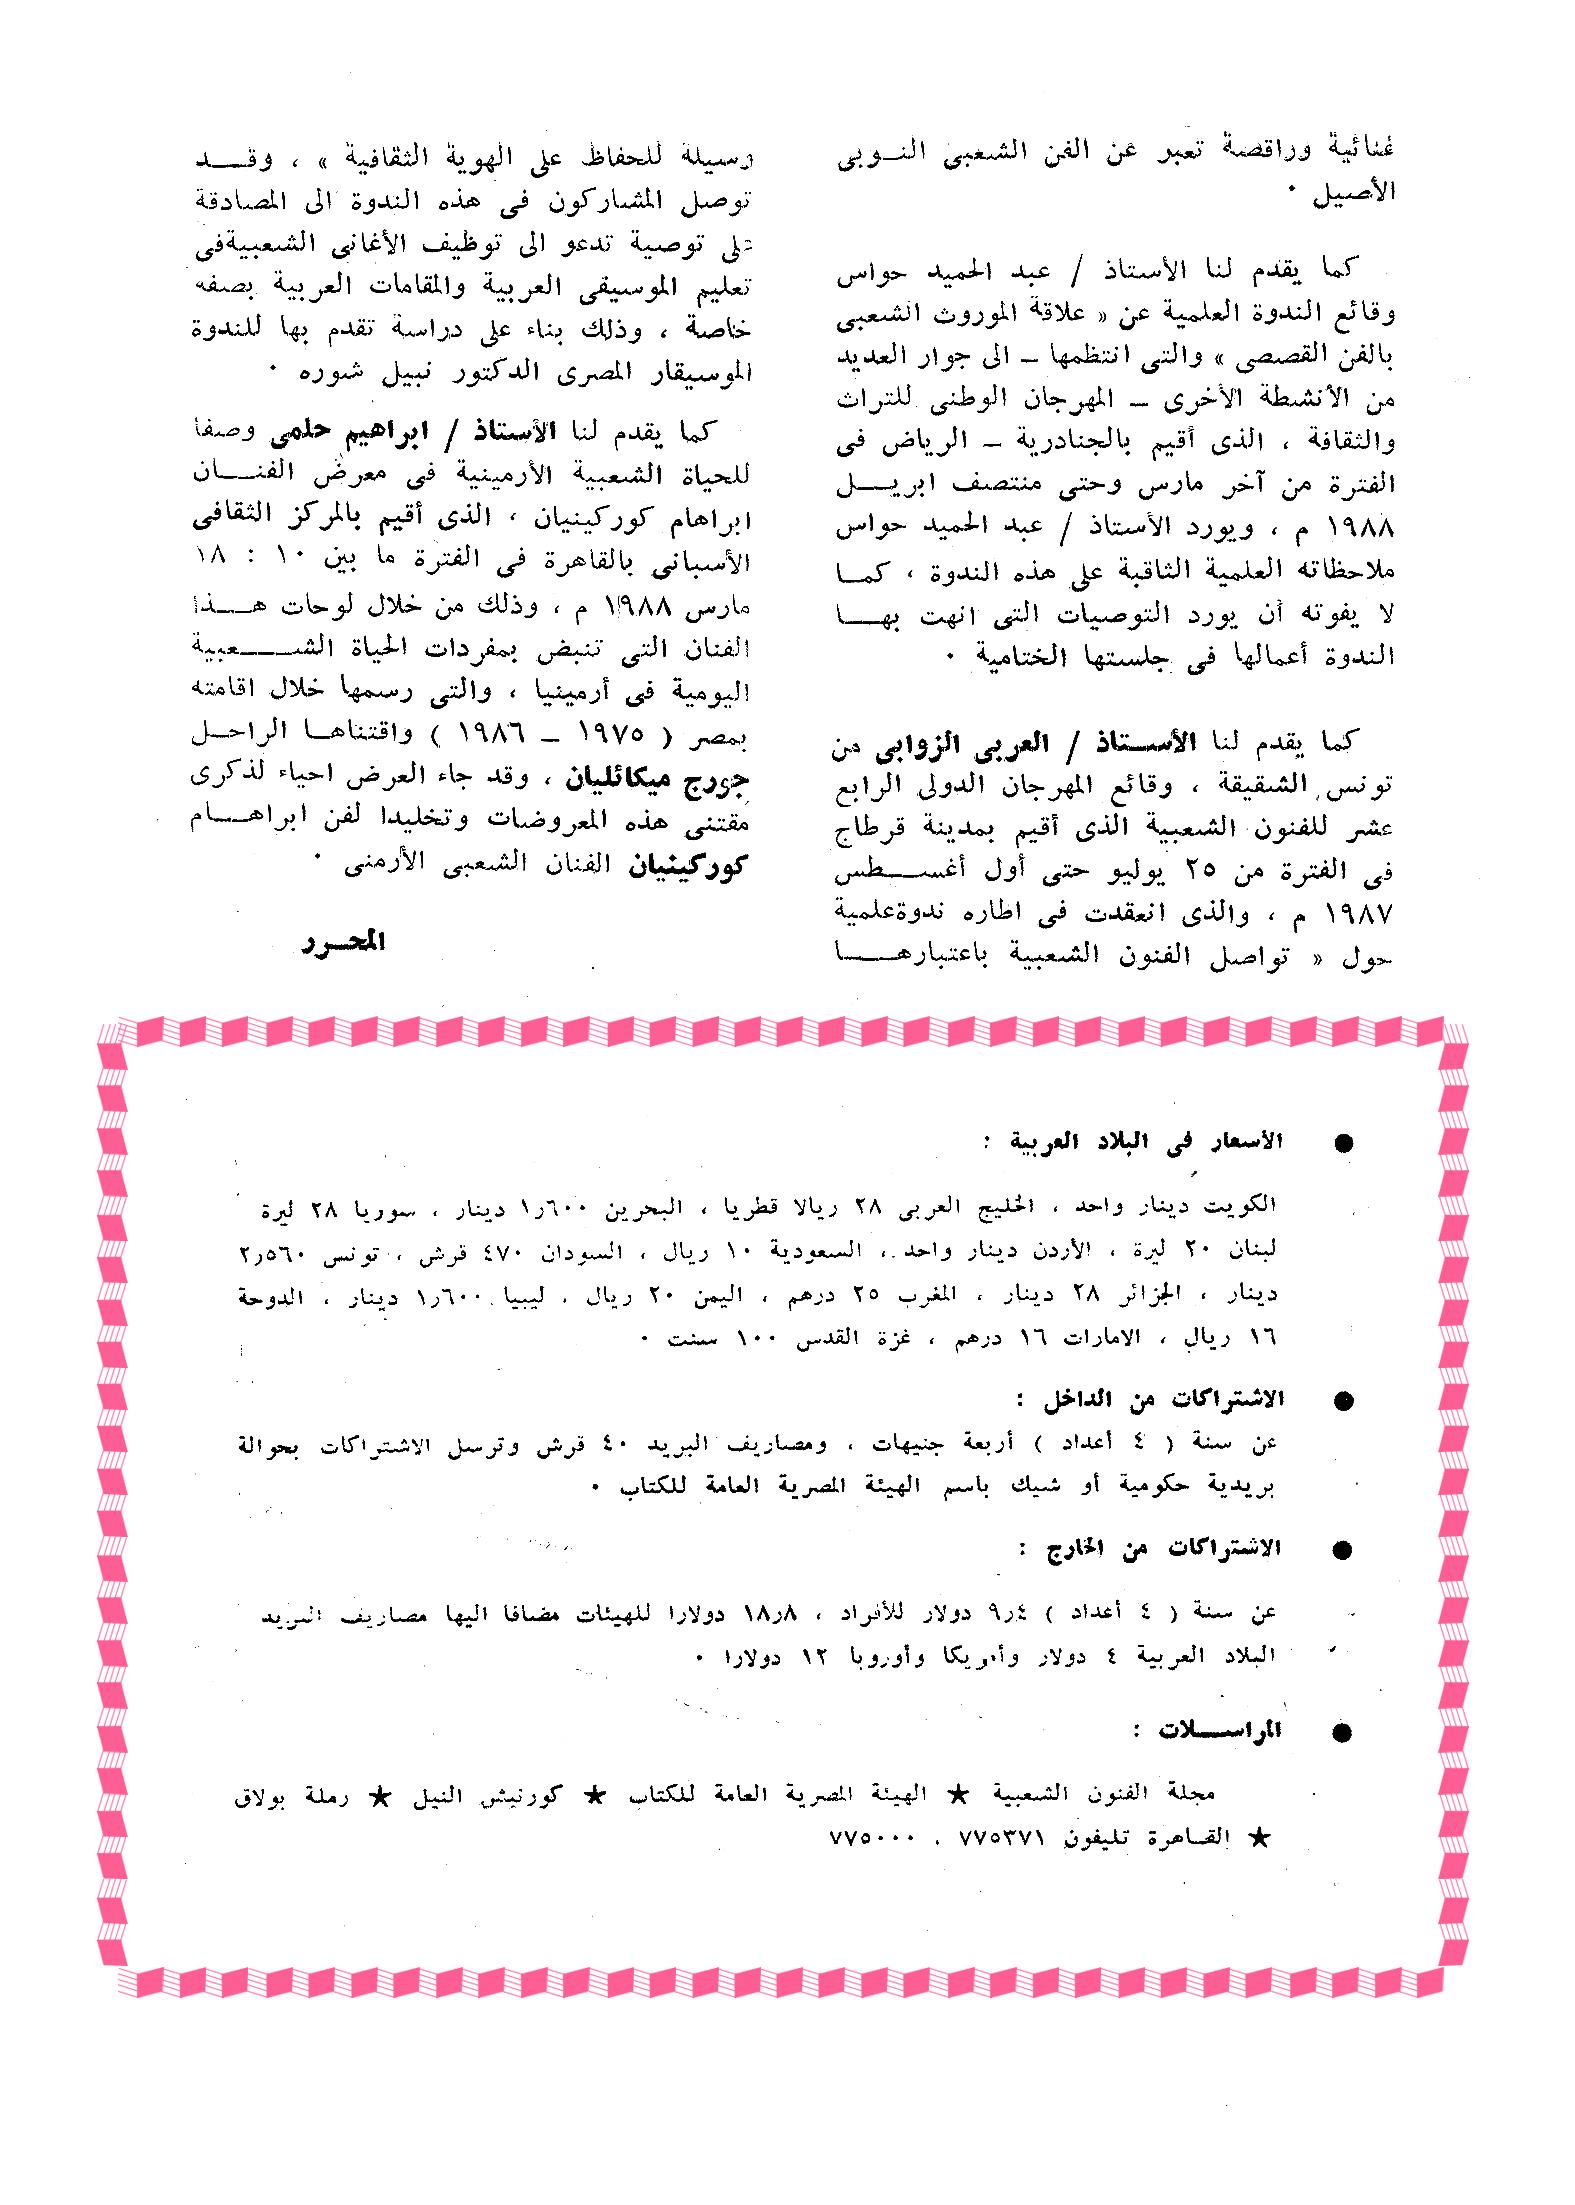 غنائية وراقصة تعبر عن الفن الشعبى النوبى
الأصيل ٠
كما يقدم لنا الأستاذ / عبد الحميد حواس
وقائع الندوة العلمية عن « علاقة الموروث الشعبى
بالفن القصصى » والتى انتظمها ــ الى جوار العديد
من الأنشطة الأخرى ــ المهرجان الوطنى للتراث
والثقافة ، الذى أقيم بالجنادرية ــ الرياض فى
الفترة من آخر مارس وحتى منتصف ابريل
١٩٨٨ م ، ويورد الأستاذ / عبد الحميد حواس
ملاحظاته العلمية الثاقبة على هذه الندوة ، كما
لا يفوته أن يورد التوصيات التى انهت بها
الندوة أعمالها فى جلستها الختامية ٠
كما يقدم لنا الأستاذ / العربى الزوابى من
تونس الشقيقة ، وقائع المهرجان الدولى الرابع
عشر للفنون الشعبية الذى أقيم بمدينة قرطاج
فى الفترة من ٢٥ يوليو حتى أول أغسطس
١٩٨٧ م ، والذى انعقدت فى اطاره ندوةعلمية
حول « تواصل الفنون الشعبية باعتبارها
وسيلة للحفاظ على الهوية الثقافية » ، وقد
توصل المشاركون فى هذه الندوة الى المصادقة
على توصية تدعو الى توظيف الأغانى الشعبيةفى
تعليم الموسيقى العربية والمقامات العربية بصفه
خاصة ، وذلك بناء على دراسة تقدم بها للندوة
الموسيقار المصرى الدكتور نبيل شوره ٠
كما يقدم لنا الأستاذ / ابراهيم حلمى وصفا
للحياة الشعبية الأرمينية فى معرض الفنان
ابراهام كوركينيان ، الذى أقيم بالمركز الثقافى
الأسبانى بالقاهرة فى الفترة ما بين ١٠ : ١٨
مارس ١٩٨٨ م ، وذلك من خلال لوحات هذا
الفنان التى تنبض بمفردات الحياة الشعبية
اليومية فى أرمينيا ، والتى رسمها خلال اقامته
بمصر ( ١٩٧٥ ــ ١٩٨٦ ) واقتناها الراحل
جورج ميكائليان ، وقد جاء العرض احياء لذكرى
مقتنى هذه المعروضات وتخليدا لفن ابراهام
كوركينيان الفنان الشعبى الأرمنى ٠
المحرر
● الأسعار فى البلاد العربية :
الكويت دينار واحد ، الخليج العربى ٢٨ ريالا قطريا ، البحرين ١٫٦٠٠ دينار ، سوريا ٢٨ ليرة
لبنان ٢٠ ليرة ، الأردن دينار واحد ، السعودية ١٠ ريال ، السودان ٤٧٠ قرش ، تونس ٢٫٥٦٠
دينار ، الجزائر ٢٨ دينار ، المغرب ٢٥ درهم ، اليمن ٢٠ ريال ، ليبيا ١٫٦٠٠ دينار ، الدوحة
١٦ ريال ، الامارات ١٦ درهم ، غزة القدس ١٠٠ سنت ٠
● الاشتراكات من الداخل :
عن سنة ( ٤ أعداد ) أربعة جنيهات ، ومصاريف البريد ٤٠ قرش وترسل الاشتراكات بحوالة
بريدية حكومية أو شيك باسم الهيئة المصرية العامة للكتاب ٠
● الاشتراكات من الخارج :
عن سنة ( ٤ أعداد ) ٩٫٤ دولار للأفراد ، ١٨٫٨ دولارا للهيئات مضافا اليها مصاريف البريد
البلاد العربية ٤ دولار وأمريكا وأوروبا ١٢ دولارا ٠
● المراسلات :
مجلة الفنون الشعبية ★ الهيئة المصرية العامة للكتاب ★ كورنيش النيل ★ رملة بولاق
★ القاهرة تليفون ٧٧٥٣٧١ ، ٧٧٥٠٠٠